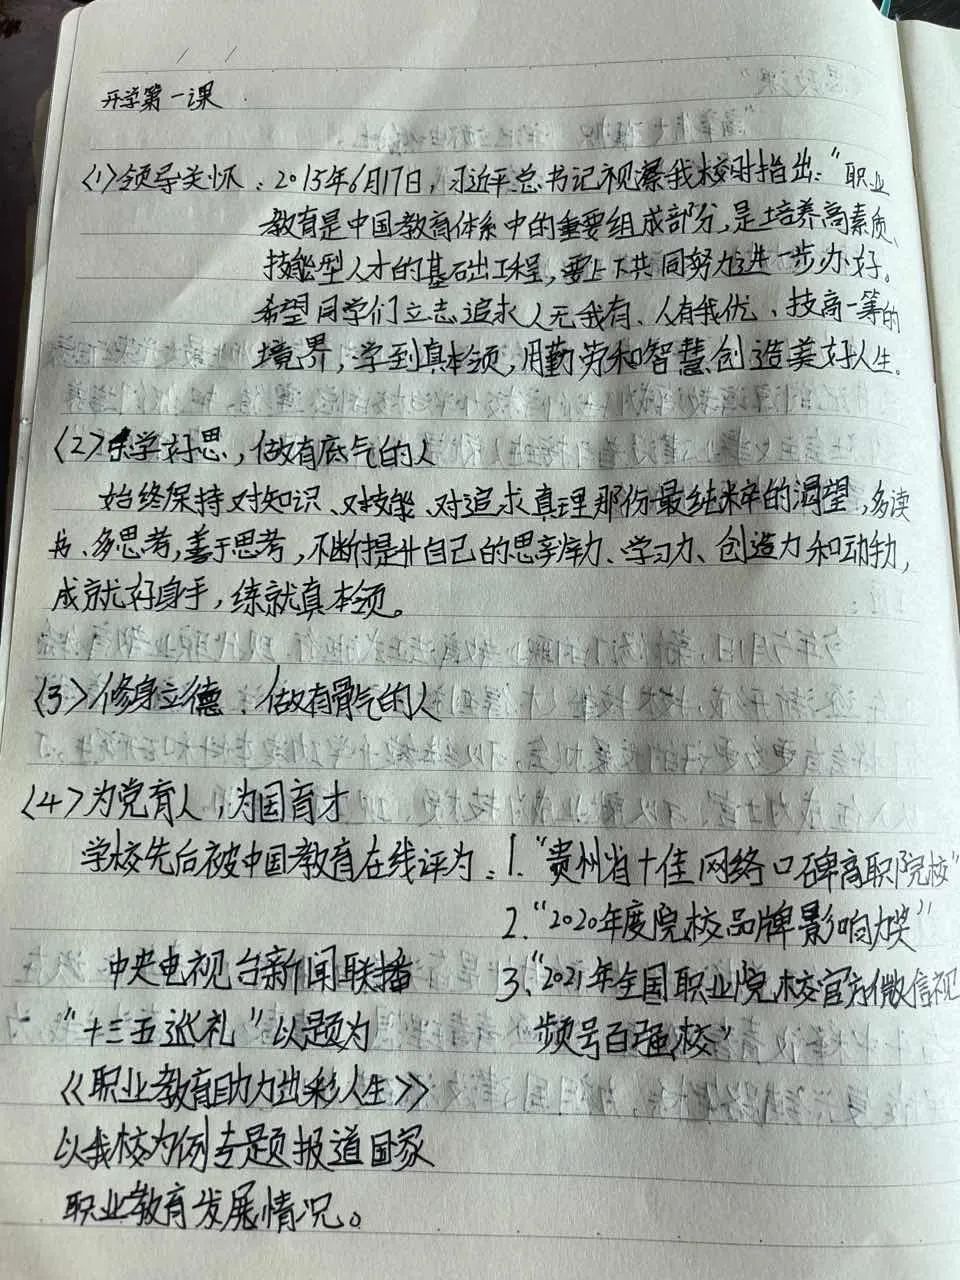 开学第一课
〈1〉领导关怀：2015年6月17日，习近平总书记视察我校时指出："职业
教育是中国教育体系中的重要组成部分，是培养高素质、
技能型人才的基础出工程，要上下共同努力进一步办好。
希望同学们立志追求人无我有、人有我优、技高一等的
境界，学到真本领，用勤劳和智慧创造美好人生。
〈2〉乐学好思，做有底气的人
始终保持对知识、对技能、对追求真理那份最纯粹的渴望，多读
书、多思考，善于思考，不断提升自己的思辨力、学习力、创造力和动力，
成就好身手，练就真本领。
〈3〉修身立德、做有骨气的人
〈4〉为党育人，为国育才
学校先后被中国教育在线评为：1."贵州省十佳网络口碑高职院校"
2."2020年度院校品牌影响力奖"
3."2021年全国职业院校官方微信视
频号百强校"
中央电视台新闻联播
"十三五巡礼"以题为
《职业教育助力出彩人生》
以我校为例专题报道国家
职业教育发展情况。